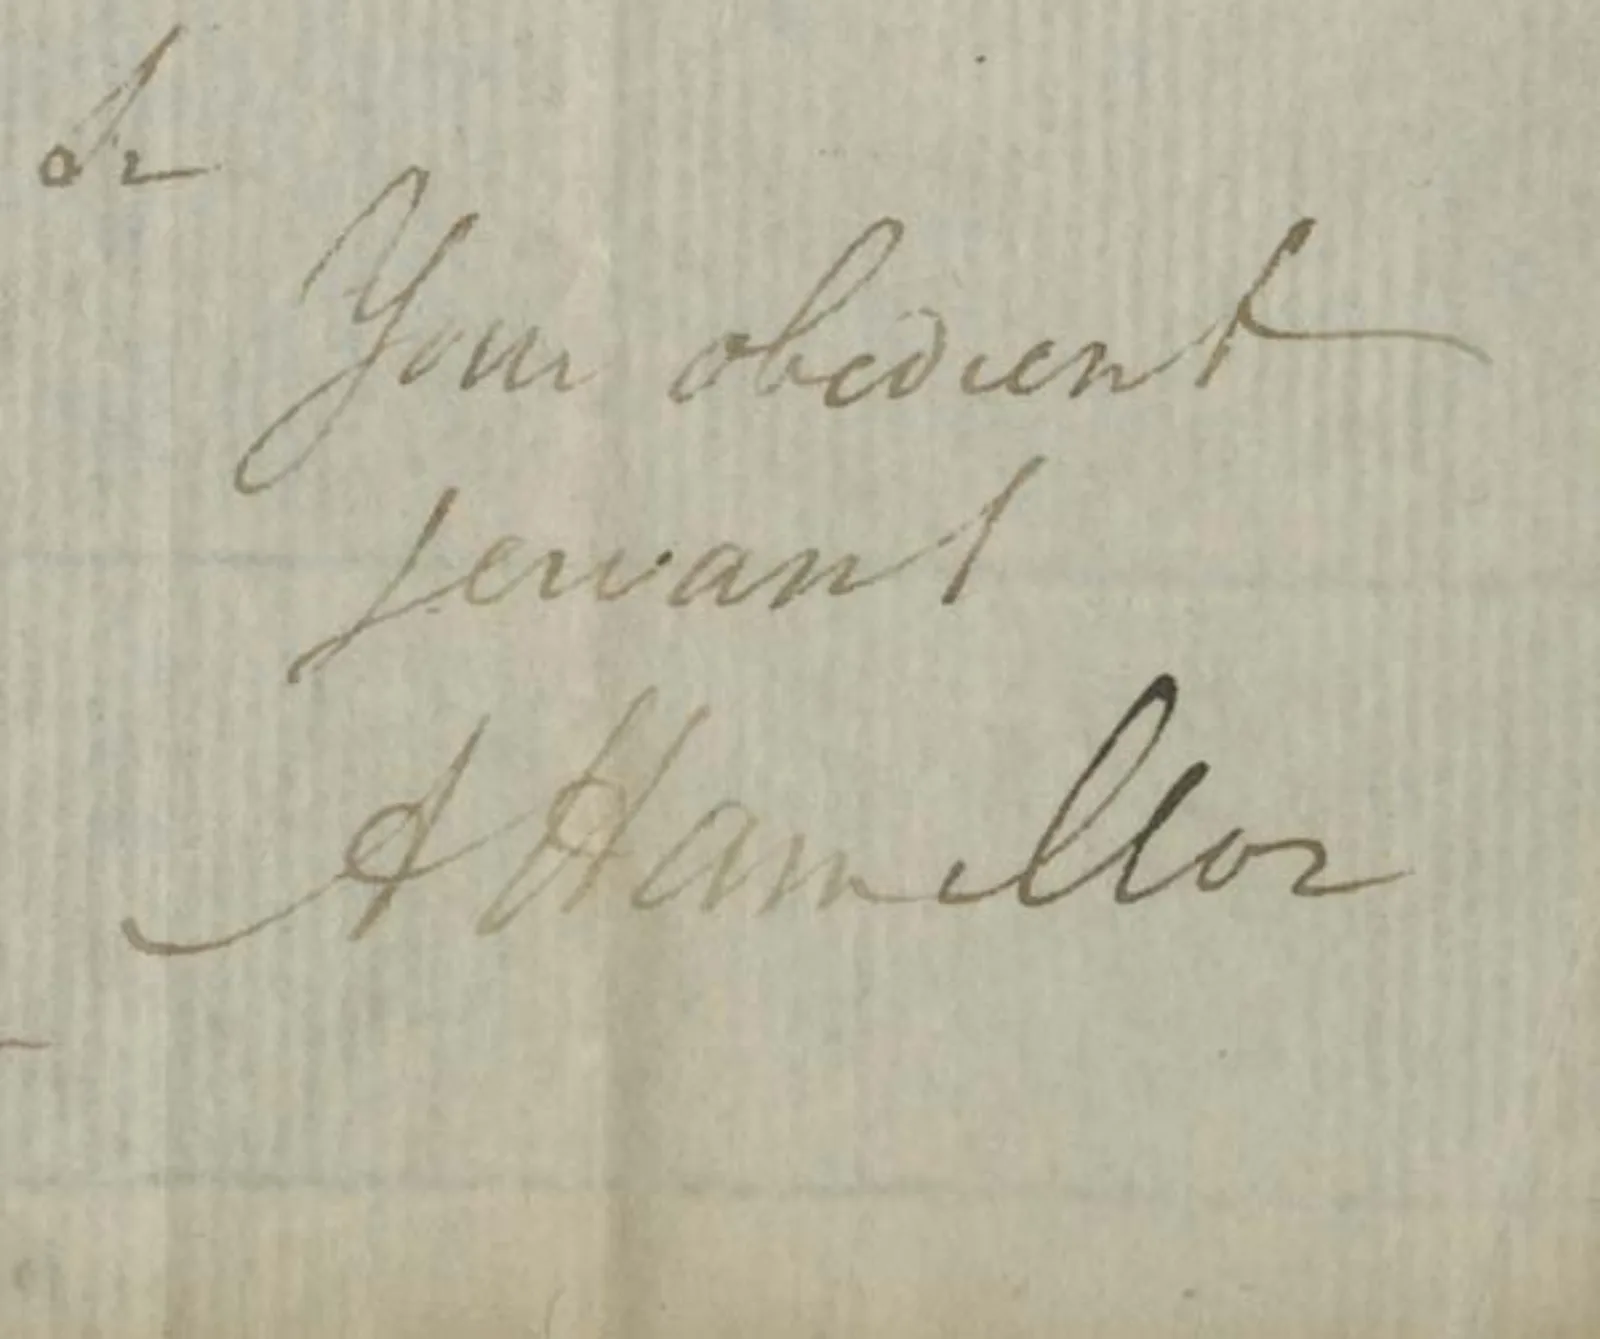 Sr
Your obedient
servant
A Hamilton